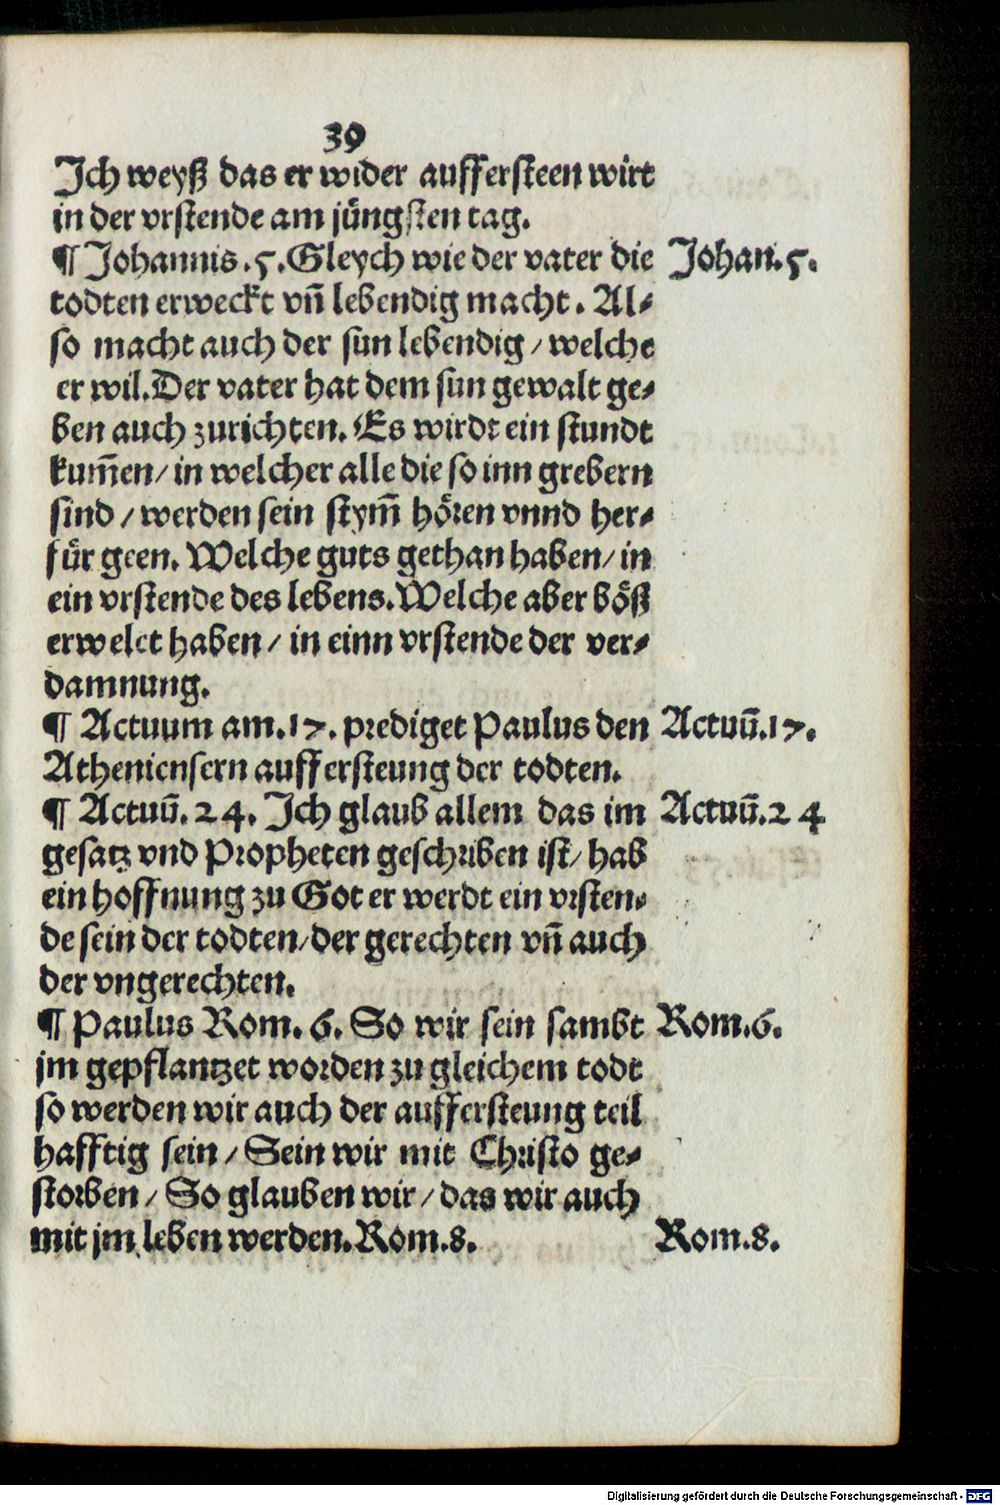 39
Ich weyß das er wider aufferſteen wirt
in der vrſtende am jüngſten tag.
¶ Johannis .5. Gleych wie der vater die Johan.5.
todten erweckt vñ lebendig macht. Al⸗
ſo macht auch der ſun lebendig / welche
er wil. Der vater hat dem ſun gewalt ge⸗
ben auch zurichten. Es wirdt ein ſtundt
kum̃en / in welcher alle die ſo inn grebern
ſind / werden ſein ſtym̃ hören vnnd her⸗
für geen. Welche guts gethan haben / in
ein vrſtende des lebens. Welche aber böß
erwelet haben / in einn vrſtende der ver⸗
damnung.
¶ Actuum am.17. prediget Paulus den Actuū.17.
Athenienſern aufferſteung der todten.
¶ Actuū. 24. Ich glaub allem das im Actuū.24
geſatz vnd Propheten geſchriben iſt / hab
ein hoffnung zu Got er werdt ein vrſten⸗
de ſein der todten / der gerechten vñ auch
der vngerechten.
¶ Paulus Rom. 6. So wir ſein ſambt Rom.6.
jm gepflantzet worden zu gleichem todt
ſo werden wir auch der aufferſteung teil
hafftig ſein / Sein wir mit Chriſto ge⸗
ſtorben / So glauben wir / das wir auch
mit jm leben werden. Rom.8. Rom.8.
Digitalisierung gefördert durch die Deutsche Forschungsgemeinschaft - DFG